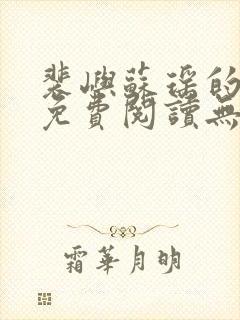 裴嶼蘇瑤的
免費閱讀無
霜華月明